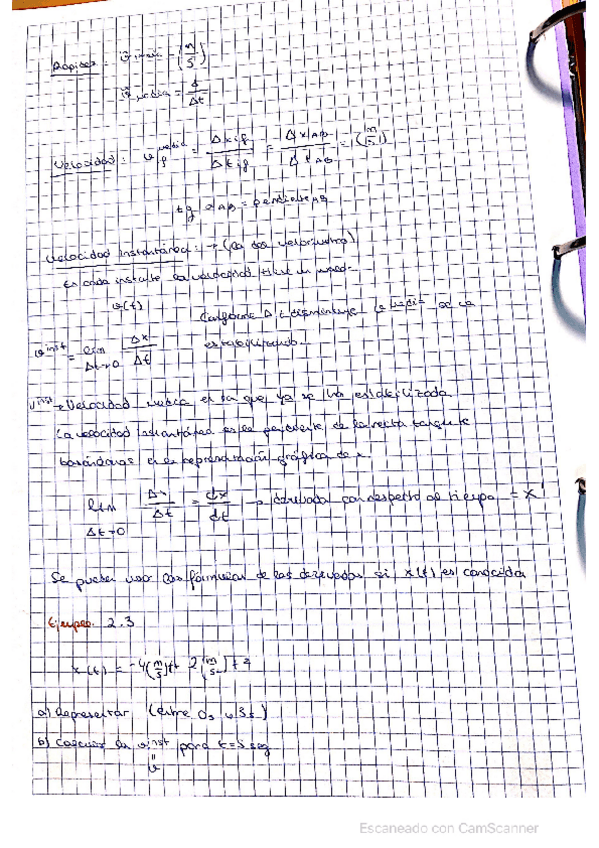 Rapidez: v̂ media (m/s)
v̂ media = d/Δt
Velocidad: v media = Δx if/Δt if = Δx AB/Δt AB = (m/s)
tg AB = pendiente AB
Velocidad instantánea: → (la da velocímetro)
En cada instante la velocidad
v(t)
Conforme Δt disminuye, la se va
v inst = lim Δt→0 Δx/Δt estabilizando.
v inst → Velocidad media es la que ya se ha estabilizado
La velocidad instantánea es la pendiente de la recta tangente
basándonos en la representación gráfica de x.
lim Δt→0 Δx/Δt = dx/dt → derivada con respecto al tiempo = x'
Se pueden usar las fórmulas de las derivadas si x(t) es conocida
Ejemplo 2.3
x(t) = -4(m/s)t + 2(m/s)t²
a) Representar (entre 0s y 3s)
b) Calcular la v inst para t=3 seg
v
Escaneado con CamScanner